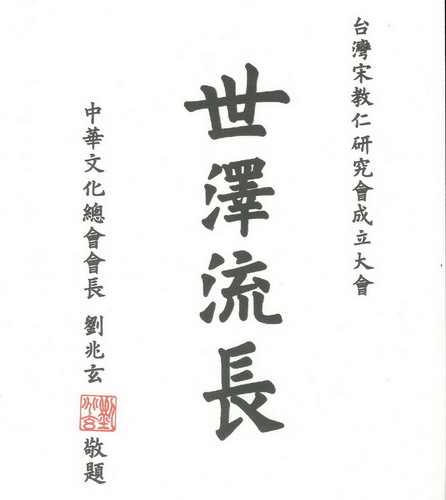 台灣宋教仁研究會成立大會
世澤流長
中華文化總會會長 劉兆玄 敬題